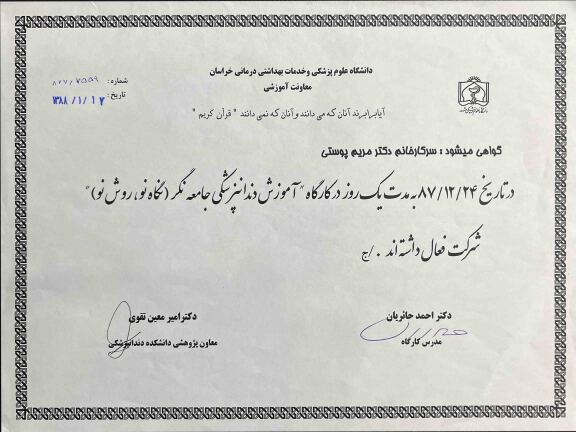 دانشگاه علوم پزشکی وخدمات بهداشتی درمانی خراسان
معاونت آموزشی
شماره:
تاریخ: ۱۳۸۸/۱/۱۷
آیا برابرند آنان که می دانند و آنان که نمی دانند " قرآن کریم "
گواهی میشود : سرکارخانم دکتر مریم پوستی
در تاریخ ۸۷/۱۲/۲۴ به مدت یک روز در کارگاه " آموزش دندانپزشکی جامعه نگر (نگاه نو، روش نو) "
شرکت فعال داشته اند . /ج
دکتر احمد حائریان
مدرس کارگاه
دکتر امیر معین تقوی
معاون پژوهشی دانشکده دندانپزشکی